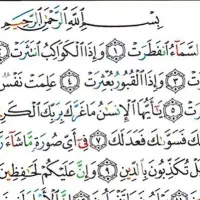 بِسْمِ ٱللَّهِ ٱلرَّحْمَٰنِ ٱلرَّحِيمِ
ٱلسَّمَآءُ ٱنفَطَرَتْ ١ وَإِذَا ٱلْكَوَاكِبُ ٱنتَثَرَتْ
٣ وَإِذَا ٱلْقُبُورُ بُعْثِرَتْ ٤ عَلِمَتْ نَفْسٌ
٥ يَٰٓأَيُّهَا ٱلْإِنسَٰنُ مَا غَرَّكَ بِرَبِّكَ ٱلْكَرِ
كَ فَسَوَّىٰكَ فَعَدَلَكَ ٧ فِىٓ أَىِّ صُورَةٍ مَّا شَآءَ رَ
بَلْ تُكَذِّبُونَ بِٱلدِّينِ ٩ وَإِنَّ عَلَيْكُمْ لَحَٰفِظِينَ